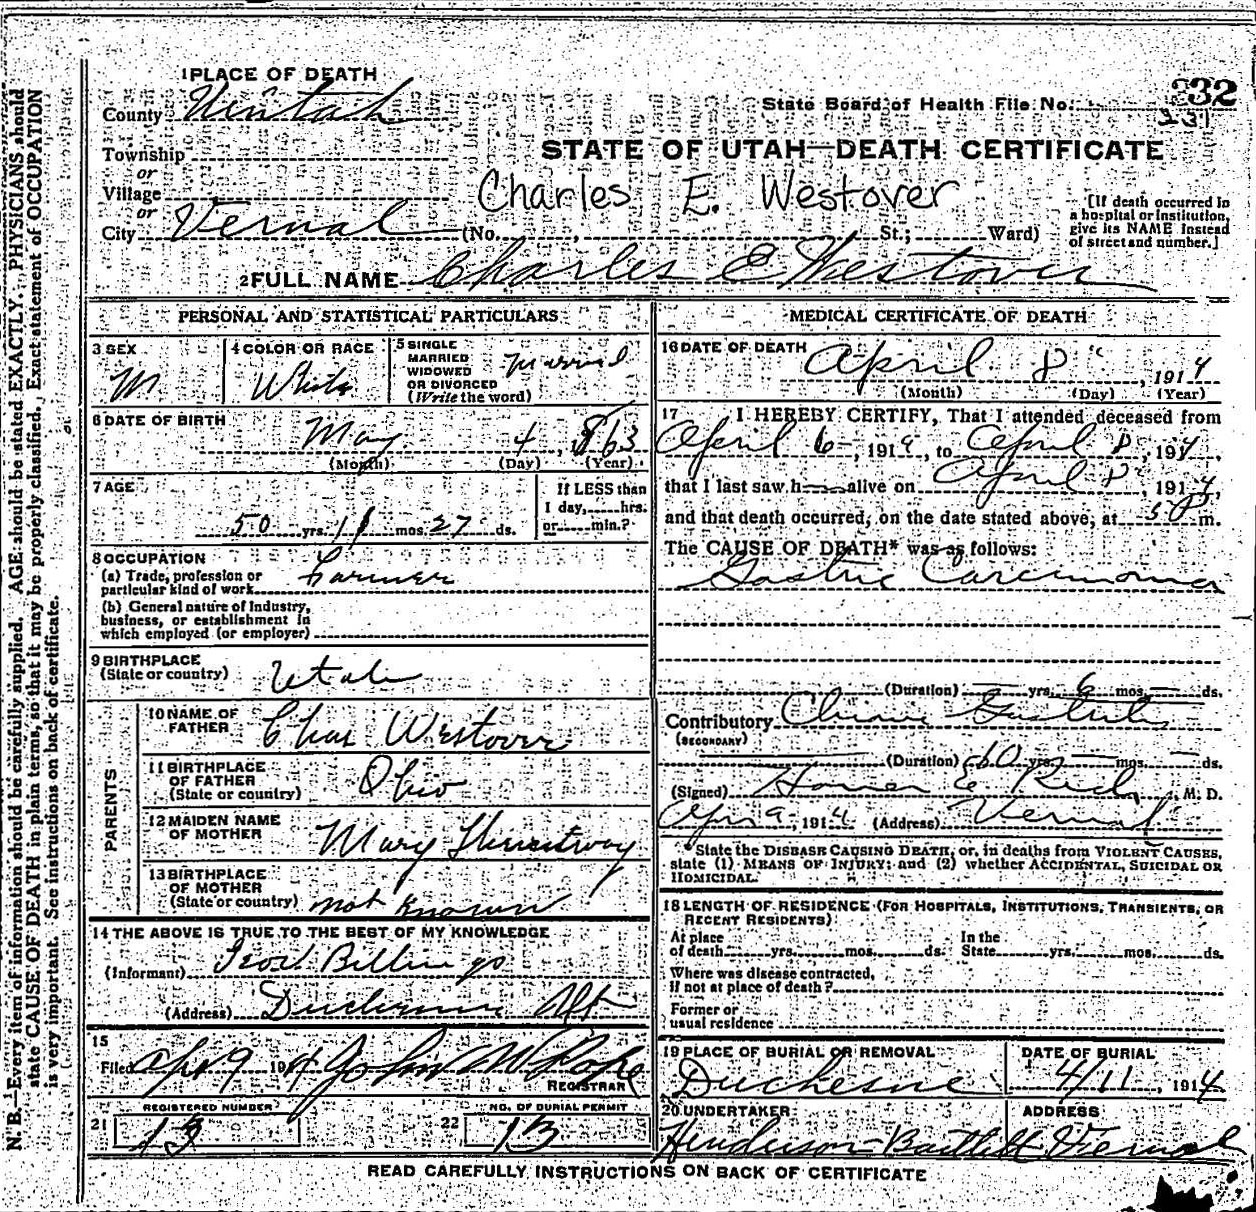 1 PLACE OF DEATH
County Uintah
State Board of Health File No. 32
231
Township
or
Village
or
City Vernal (No. , St.; Ward)
STATE OF UTAH—DEATH CERTIFICATE
Charles E. Westover
[If death occurred in
a hospital or institution,
give its NAME instead
of street and number.]
2 FULL NAME Charles E Westover
PERSONAL AND STATISTICAL PARTICULARS
3 SEX
M
4 COLOR OR RACE
White
5 SINGLE
MARRIED
WIDOWED
OR DIVORCED
(Write the word)
Married
6 DATE OF BIRTH
May 4, 1863
(Month) (Day) (Year)
7 AGE
50 yrs. 11 mos. 27 ds.
If LESS than
1 day, hrs.
or min.?
8 OCCUPATION
(a) Trade, profession or
particular kind of work Farmer
(b) General nature of Industry,
business, or establishment in
which employed (or employer)
9 BIRTHPLACE
(State or country) Utah
PARENTS
10 NAME OF
FATHER Chas Westover
11 BIRTHPLACE
OF FATHER
(State or country) Ohio
12 MAIDEN NAME
OF MOTHER Mary
13 BIRTHPLACE
OF MOTHER
(State or country) not known
14 THE ABOVE IS TRUE TO THE BEST OF MY KNOWLEDGE
(Informant) Billings
(Address) Duchesne
15
Filed Apr 9 1914 John W Pope
REGISTRAR
REGISTERED NUMBER
21 13
NO. OF BURIAL PERMIT
22 13
MEDICAL CERTIFICATE OF DEATH
16 DATE OF DEATH
April 8, 1914
(Month) (Day) (Year)
17 I HEREBY CERTIFY, That I attended deceased from
April 6, 1914, to April 8, 1914,
that I last saw h alive on April 8, 1914,
and that death occurred, on the date stated above, at m.
The CAUSE OF DEATH* was as follows:
Gastric Carcinoma
(Duration) — yrs. 6 mos. — ds.
Contributory Gastritis
(SECONDARY)
(Duration) yrs. — mos. — ds.
(Signed) Homer E Rich, M. D.
Apr 9, 1914 (Address) Vernal
*State the DISEASE CAUSING DEATH, or, in deaths from VIOLENT CAUSES,
state (1) MEANS OF INJURY; and (2) whether ACCIDENTAL, SUICIDAL OR
HOMICIDAL.
18 LENGTH OF RESIDENCE (FOR HOSPITALS, INSTITUTIONS, TRANSIENTS, OR
RECENT RESIDENTS)
At place
of death yrs. mos. ds.
In the
State yrs. mos. ds.
Where was disease contracted,
if not at place of death?
Former or
usual residence
19 PLACE OF BURIAL OR REMOVAL
Duchesne
DATE OF BURIAL
4/11, 1914
20 UNDERTAKER
Henderson-Bartlett
ADDRESS
Vernal
READ CAREFULLY INSTRUCTIONS ON BACK OF CERTIFICATE
N. B.—Every item of information should be carefully supplied. AGE should be stated EXACTLY. PHYSICIANS should
state CAUSE OF DEATH in plain terms, so that it may be properly classified. Exact statement of OCCUPATION
is very important. See instructions on back of certificate.